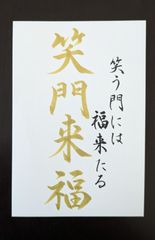 笑う門には
福来たる
笑門来福